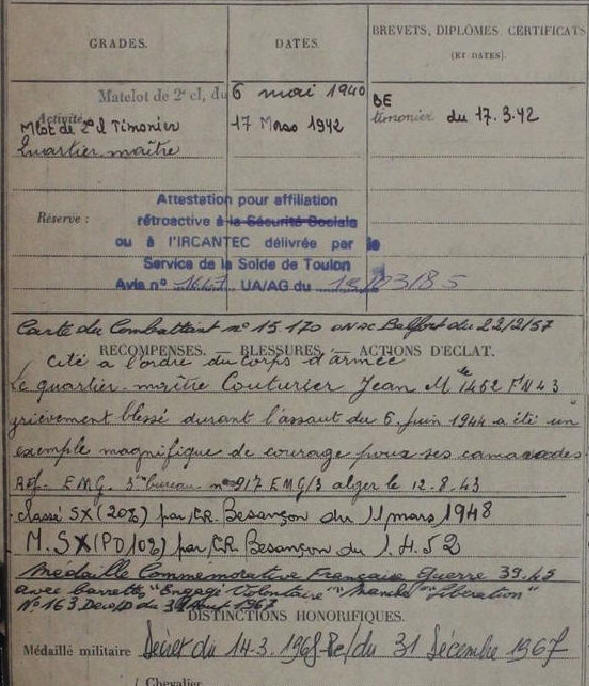 GRADES. DATES. BREVETS, DIPLÔMES, CERTIFICATS
(ET DATES).
Matelot de 2e cl, du 6 mai 1940 BE
Activité
Mlot de 2e cl Timonier 17 Mars 1942 timonier du 17.3.42
Quartier maître
Réserve :
Attestation pour affiliation
rétroactive à la Sécurité Sociale
ou à l'IRCANTEC délivrée par le
Service de la Solde de Toulon
Avis n° UA/AG du 03/85
Carte du Combattant n° 15 170 ONAC Belfort du 22/2/57
RÉCOMPENSES. — BLESSURES. — ACTIONS D'ÉCLAT.
Cité à l'ordre du Corps d'armée
Le quartier-maître Couturier Jean Mle 1452 FN 43
grièvement blessé durant l'assaut du 6 juin 1944 a été un
exemple magnifique de courage pour ses camarades
Réf. EMG. 3me bureau n° 917 EMG/3 alger le 12.8.43
classé SX (20%) par CR. Besançon du 11 mars 1948
M. SX (PD 10%) par CR. Besançon du 1.4.52
Médaille Commémorative Française Guerre 39.45
avec barrettes "Engagé Volontaire" "Manche" "Libération"
N° 163 du 1967
DISTINCTIONS HONORIFIQUES.
Médaillé militaire Décret du 31 Décembre 1967
Chevalier